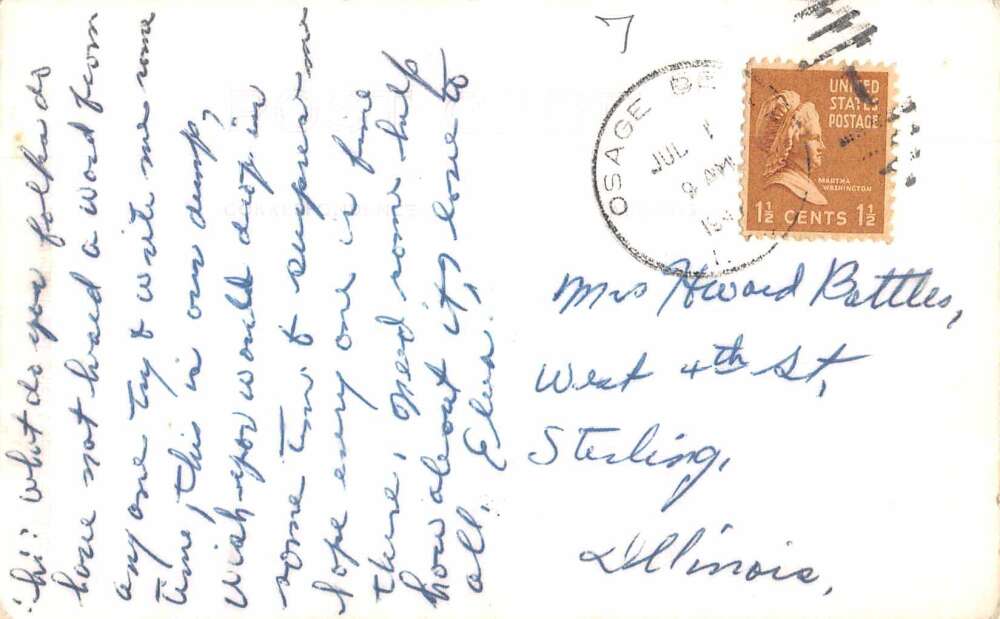 hi: what do you folks do
have not heard a word from
any one try & write me some
time, this is our dump,
wish you would drop in
some time. I suppose
hope every one is fine
there, Need some help
how about it, love to
all,
7
OSAGE BE
JUL 1
9 AM
194
UNITED
STATES
POSTAGE
MARTHA
WASHINGTON
1½ CENTS 1½
Mrs Howard Battles,
West 4th St,
Sterling,
Illinois,